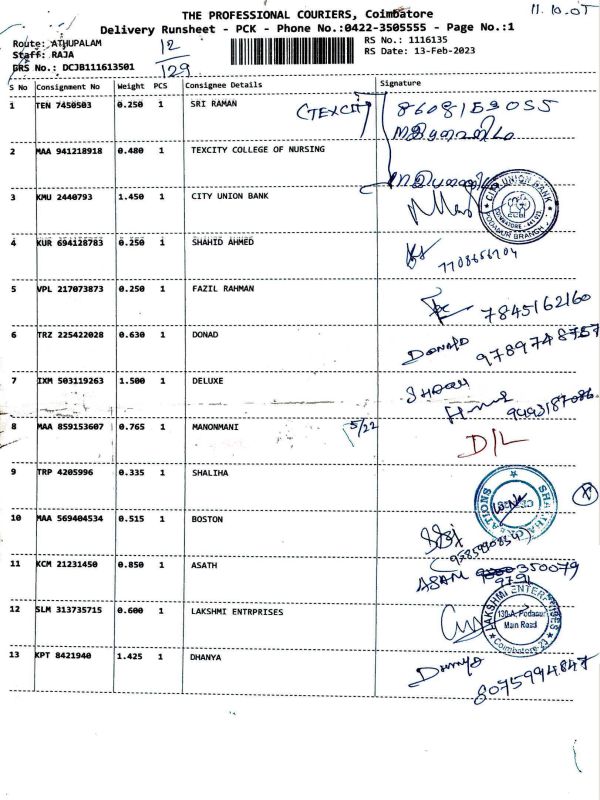 11.10.05
THE PROFESSIONAL COURIERS, Coimbatore
Delivery Runsheet - PCK - Phone No.:0422-3505555 - Page No.:1
Route: ATHUPALAM
12
RS No.: 1116135
Staff: RAJA
RS Date: 13-Feb-2023
DRS No.: DCJB111613501
129
S No Consignment No Weight PCS Consignee Details Signature
1 TEN 7450503 0.250 1 SRI RAMAN (TEXCITY) 8608153055
2 MAA 941218918 0.480 1 TEXCITY COLLEGE OF NURSING
3 KMU 2440793 1.450 1 CITY UNION BANK
CITY UNION BANK
PODANUR BRANCH
4 KUR 694128783 0.250 1 SHAHID AHMED
5 VPL 217073873 0.250 1 FAZIL RAHMAN 7845162160
6 TRZ 225422028 0.630 1 DONAD 9789748757
7 IXM 503119263 1.500 1 DELUXE
8 MAA 859153607 0.765 1 MANONMANI 5/22 D/L
9 TRP 4205996 0.335 1 SHALIHA
10 MAA 569404534 0.515 1 BOSTON
11 KCM 21231450 0.850 1 ASATH 350079
9791
12 SLM 313735715 0.600 1 LAKSHMI ENTRPRISES
LAKSHMI ENTERPRISES
130-A, Podanur
Main Road
Coimbatore-23
13 KPT 8421940 1.425 1 DHANYA
8075994847